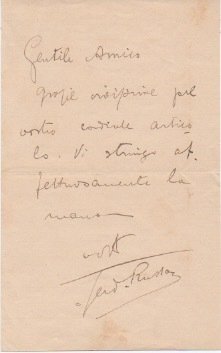 Gentile Amico
grazie vivissime pel
vostro cordiale artico
lo. Vi stringo af-
fettuosamente la
mano
vostr
Ferd. Russo